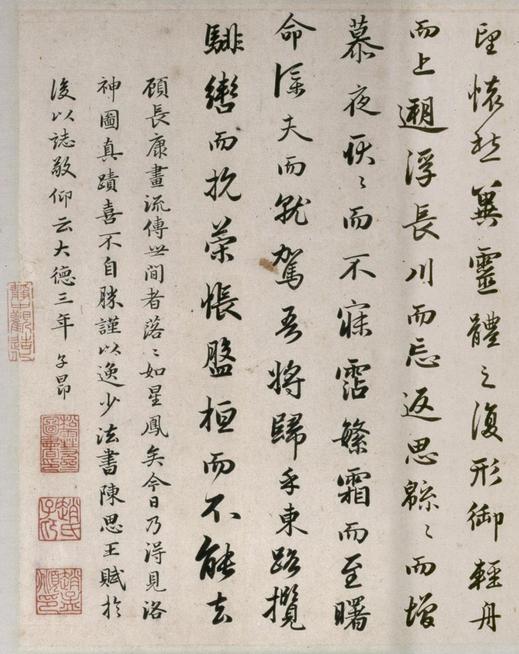 望懷愁冀靈體之復形御輕舟
而上遡浮長川而忘返思緜〻而增
慕夜耿〻而不寐霑繁霜而至曙
命僕夫而就駕吾將歸乎東路攬
騑轡而抗策悵盤桓而不能去
顧長康畫流傳世間者落〻如星鳳矣今日乃得見洛
神圖真蹟喜不自勝謹以逸少法書陳思王賦於
後以誌敬仰云大德三年 子昂
趙氏子昂
趙孟頫印